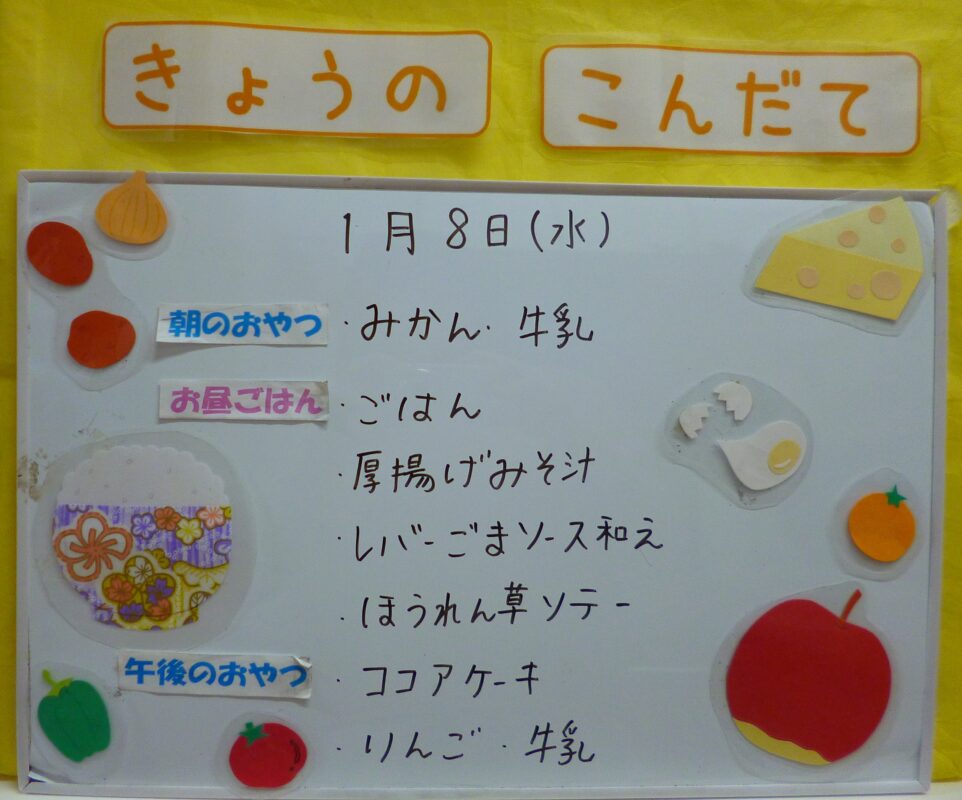 きょうの こんだて
1月8日(水)
朝のおやつ ・みかん・牛乳
お昼ごはん ・ごはん
・厚揚げみそ汁
・レバーごまソース和え
・ほうれん草ソテー
午後のおやつ ・ココアケーキ
・りんご・牛乳